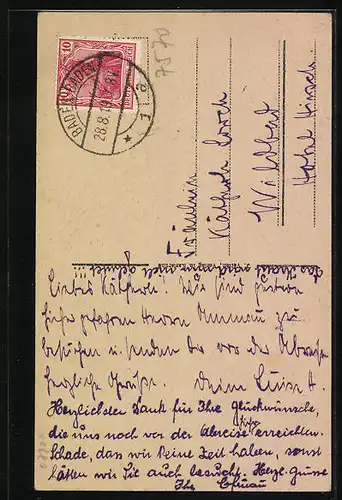 BADEN-BADEN
28.8.19
* 1 a
10
7570
Fräulein
Käthchen
Wildbad
Hotel Hirsch.
Liebes Käthchen! Wir sind gestern
hierher gefahren Herrn zu
besuchen u. senden Dir vor der Abreise
herzliche Grüße. Deine Luise
Herzlichsten Dank für Ihre Glückwünsche,
die uns noch vor der Abreise erreichten.
Schade, dass wir keine Zeit haben, sonst
hätten wir Sie auch besucht. Herzl. Grüsse
Ihr